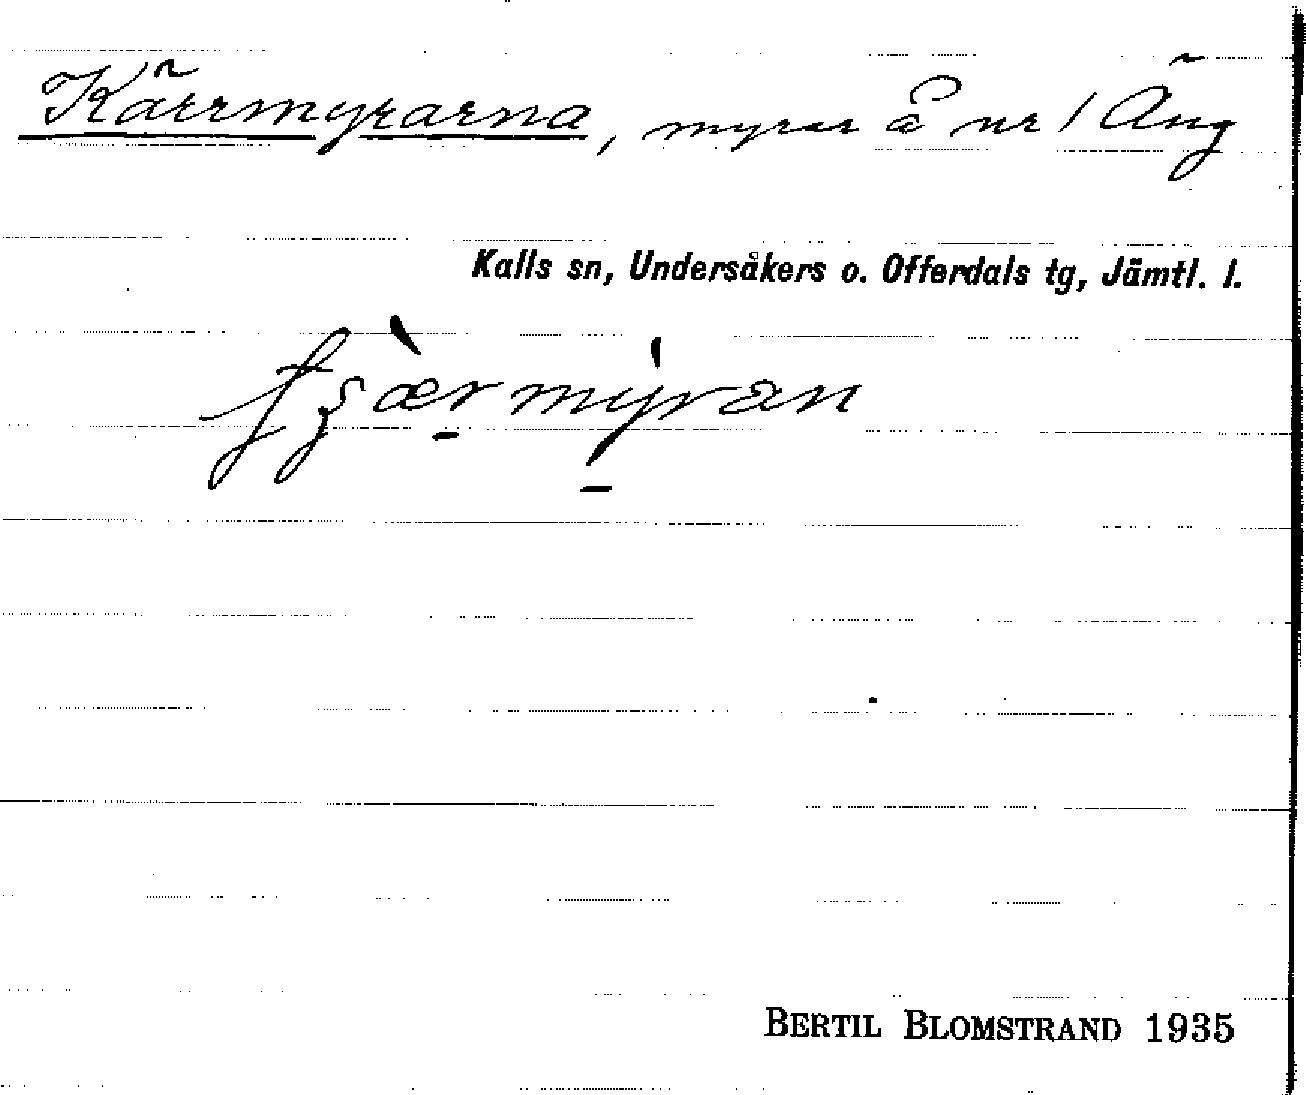 Kärrmyrarna, myrar å nr 1 Äng
Kalls sn, Undersåkers o. Offerdals tg, Jämtl. l.
BERTIL BLOMSTRAND 1935